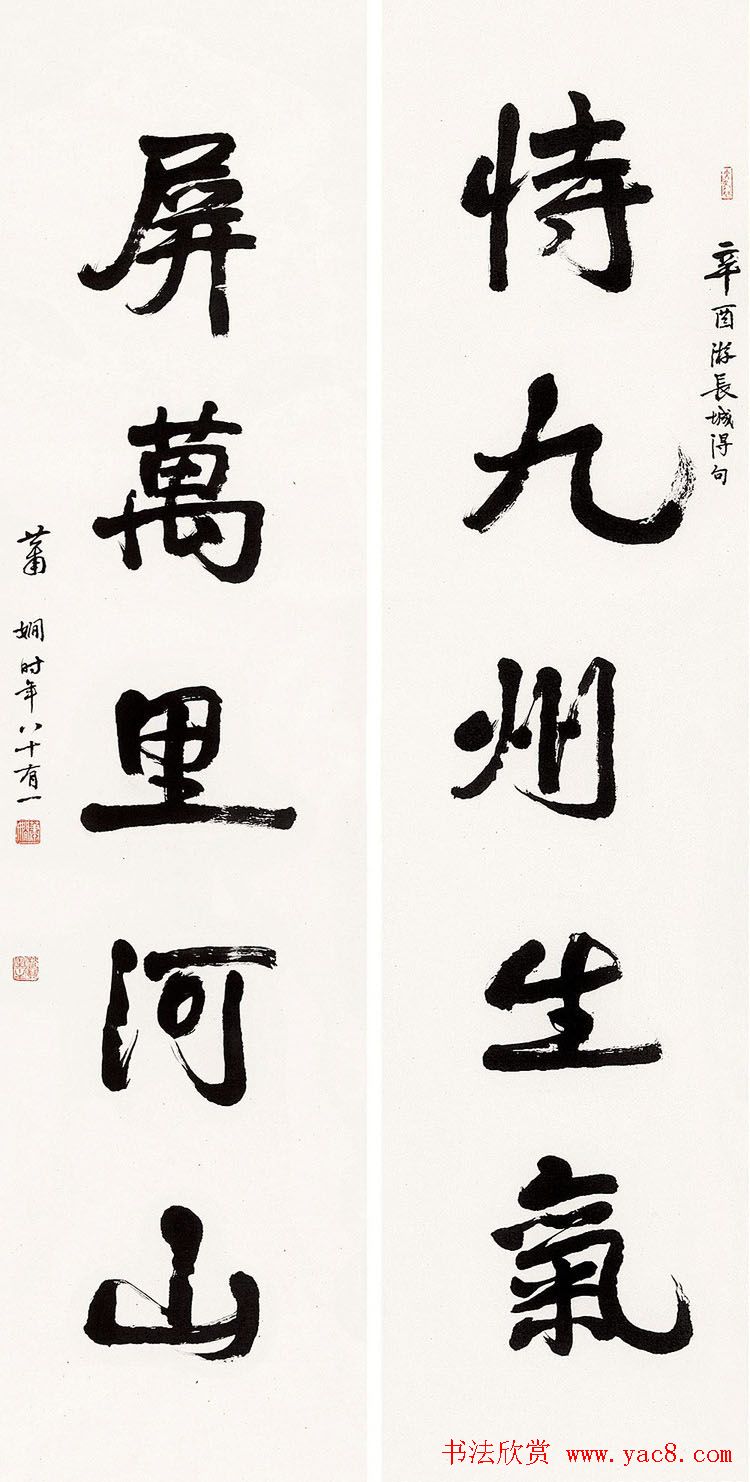 辛酉游長城得句
恃九州生氣
屏萬里河山
蕭娴时年八十有一
书法欣赏 www.yac8.com